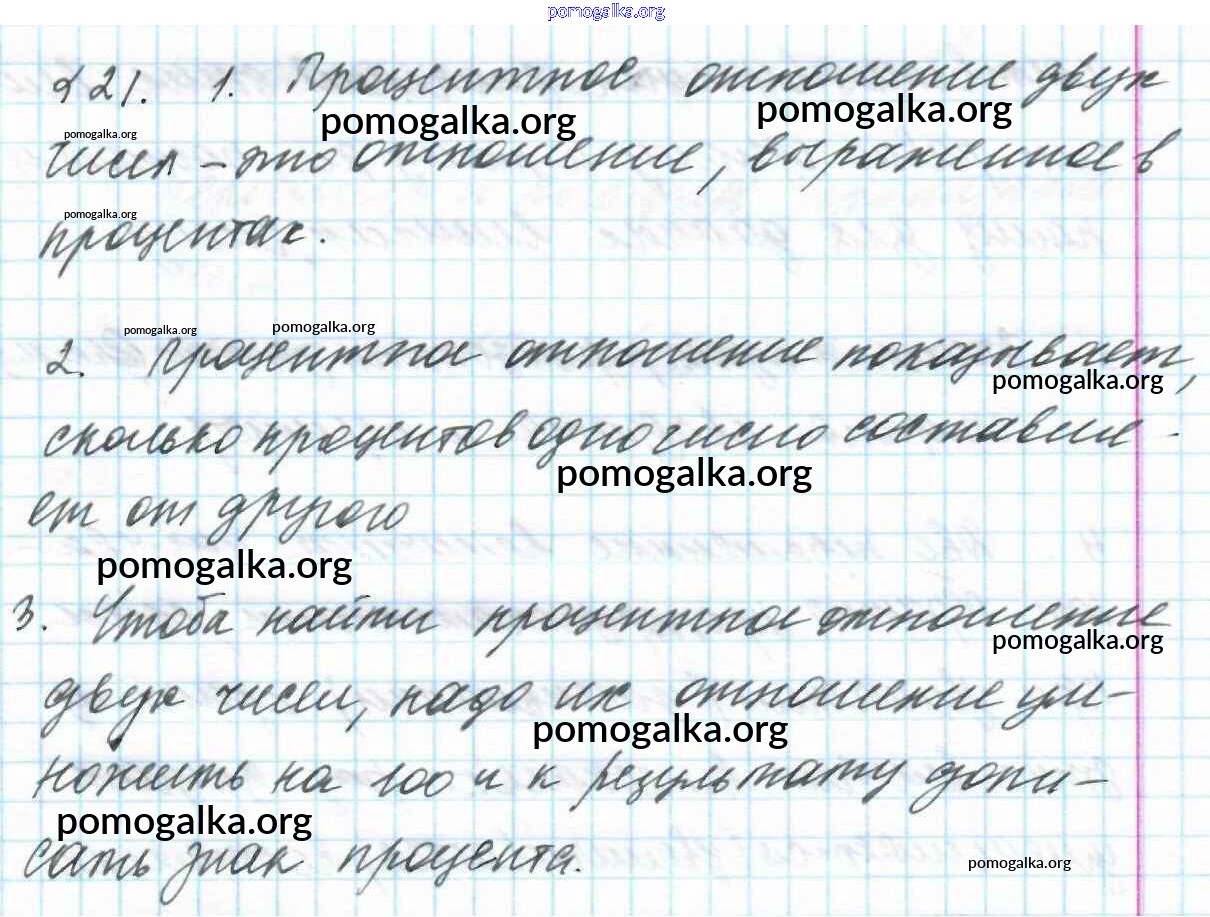 pomogalka.org
§21. 1. Процентное отношение двух
pomogalka.org pomogalka.org
pomogalka.org
чисел – это отношение, выраженное в
pomogalka.org
процентах.
pomogalka.org pomogalka.org
2. Процентное отношение показывает,
pomogalka.org
сколько процентов одно число составля-
pomogalka.org
ет от другого
pomogalka.org
3. Чтобы найти процентное отношение
pomogalka.org
двух чисел, надо их отношение ум-
pomogalka.org
ножить на 100 и к результату допи-
pomogalka.org
сать знак процента.
pomogalka.org